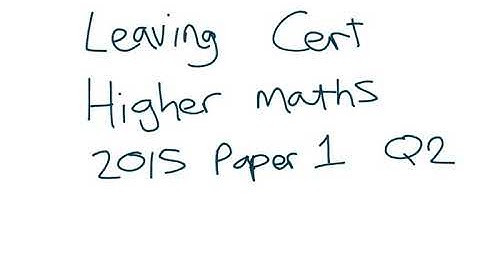 Leaving Cert
Higher maths
2015 Paper 1 Q2